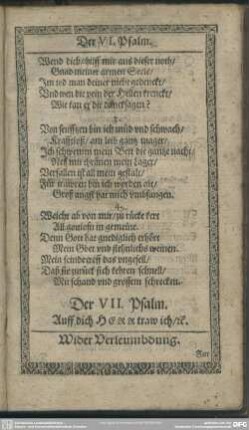 Der VI. Psalm.
Wend dich/ hilff mir aus dieser noth/
Gnad meiner armen Seele/
Im tod man deiner nicht gedenckt/
Und wen die pein der Hellen krenckt/
Wie kan er dir dancksagen?
3.
Von seufftzen bin ich müd vnd schwach/
Krafftloß/ am leib gantz mager/
Ich schwemm mein Bett die gantze nacht/
Netz mit thränen mein lager/
Verfallen ist all mein gestalt/
Für trawren bin ich worden alt/
Groß angst hat mich vmbfangen.
4.
Weicht ab von mir/ zu rücke kert
All gottlosn in gemeine.
Denn Gott hat gnediglich erhört
Mein Gbet und flehnlichs weinen.
Mein feinden treff das ungefell/
Daß sie zurück sich kehren schnell/
Mit schand und grossem schrecken.
Der VII. Psalm.
Auff dich HERR traw ich/ ꝛc.
Wider Verleumbdung.